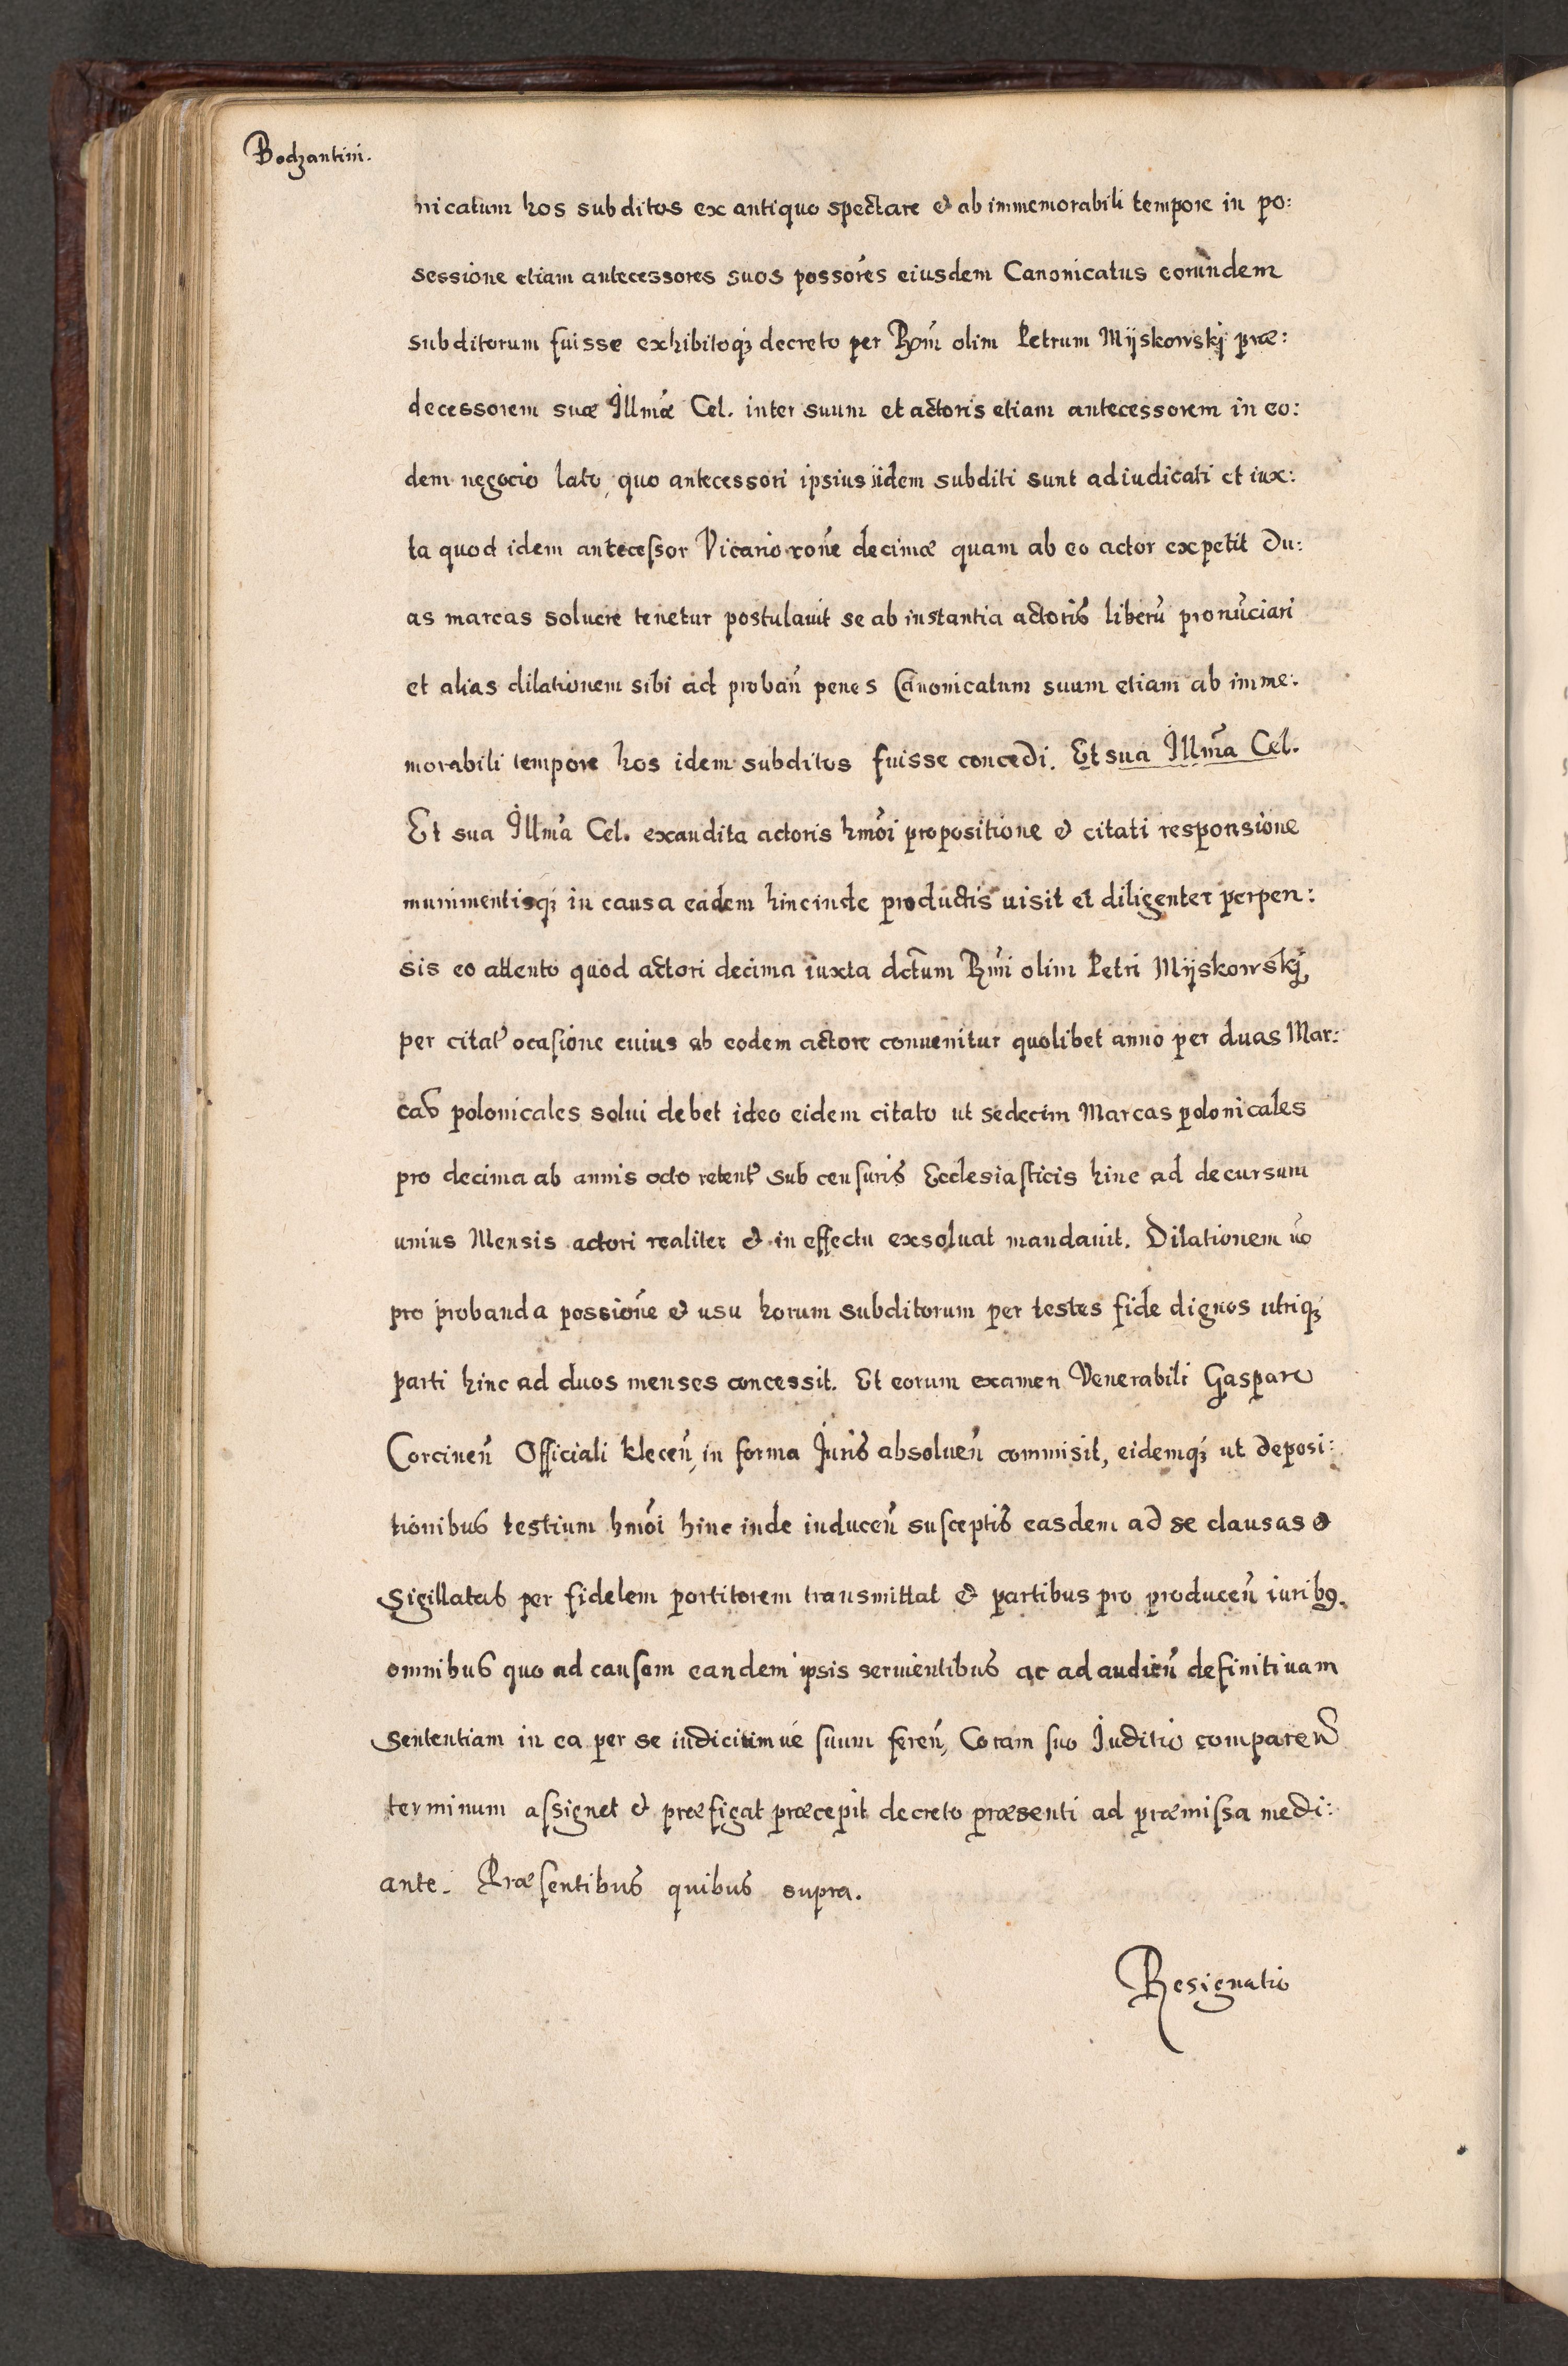 Bodzantini.
nicatum hos subditos ex antiquo spectare & ab immemorabili tempore in po:
sessione etiam antecessores suos possores eiusdem Canonicatus eorundem
subditorum fuisse exhibitoq; decreto per Rm̃ olim Petrum Mijskowskj præ:
decessorem suæ Illmæ Cel. inter suum et actoris etiam antecessorem in eo:
dem negocio lato, quo antecessori ipsius iidem subditi sunt adiudicati et iux:
ta quod idem antecessor Vicario rone decimæ quam ab eo actor expetit du:
as marcas soluere tenetur postulauit se ab instantia actoris liberũ pronũciari
et alias dilationem sibi ad probañ penes Canonicatum suum etiam ab imme:
morabili tempore hos idem subditos fuisse concedi. Et sua Illma Cel.
Et sua Illma Cel. exaudita actoris hmõi propositione & citati responsione
munimentisq; in causa eadem hincinde productis uisit et diligenter perpen:
sis eo attento quod actori decima iuxta dctum Rmi olim Petri Mijskowskj,
per citat' ocasione cuius ab eodem actore conuenitur quolibet anno per duas Mar:
cas polonicales solui debet ideo eidem citato ut sedecim Marcas polonicales
pro decima ab annis octo retent' sub censuris Ecclesiasticis hinc ad decursum
unius Mensis actori realiter & in effectu exsoluat mandauit. Dilationem ũo
pro probanda possione & usu horum subditorum per testes fide dignos utriq;
parti hinc ad duos menses concessit. Et eorum examen Venerabili Gaspare
Corcineñ Officiali kleceñ, in forma Juris absolueñ commisit, eidemq; ut deposi:
tionibus testium hmõi hinc inde induceñ susceptis easdem ad se clausas &
sigillatas per fidelem portitorem transmittat & partibus pro produceñ iurib9.
omnibus quo ad causam eandem ipsis seruientibus ac ad audieñ definitiuam
sententiam in ea per se iudicium ue suum fereñ, Coram suo Juditio compareñ
terminum assignet & præfigat præcepit decreto præsenti ad præmissa medi:
ante. Præsentibus quibus supra.
Resignatio